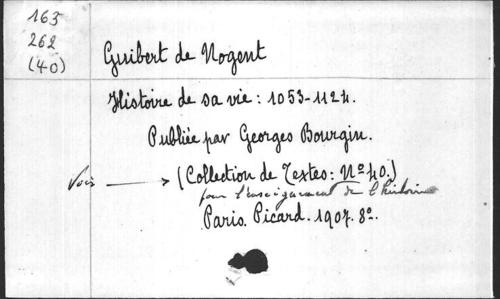 163
262
(40)
Guibert de Nogent
Histoire de sa vie : 1053-1124.
Publiée par Georges Bourgin.
Voir → (Collection de Textes : Nº 40.)
pour l'enseignement de l'histoire
Paris. Picard. 1907. 8º.